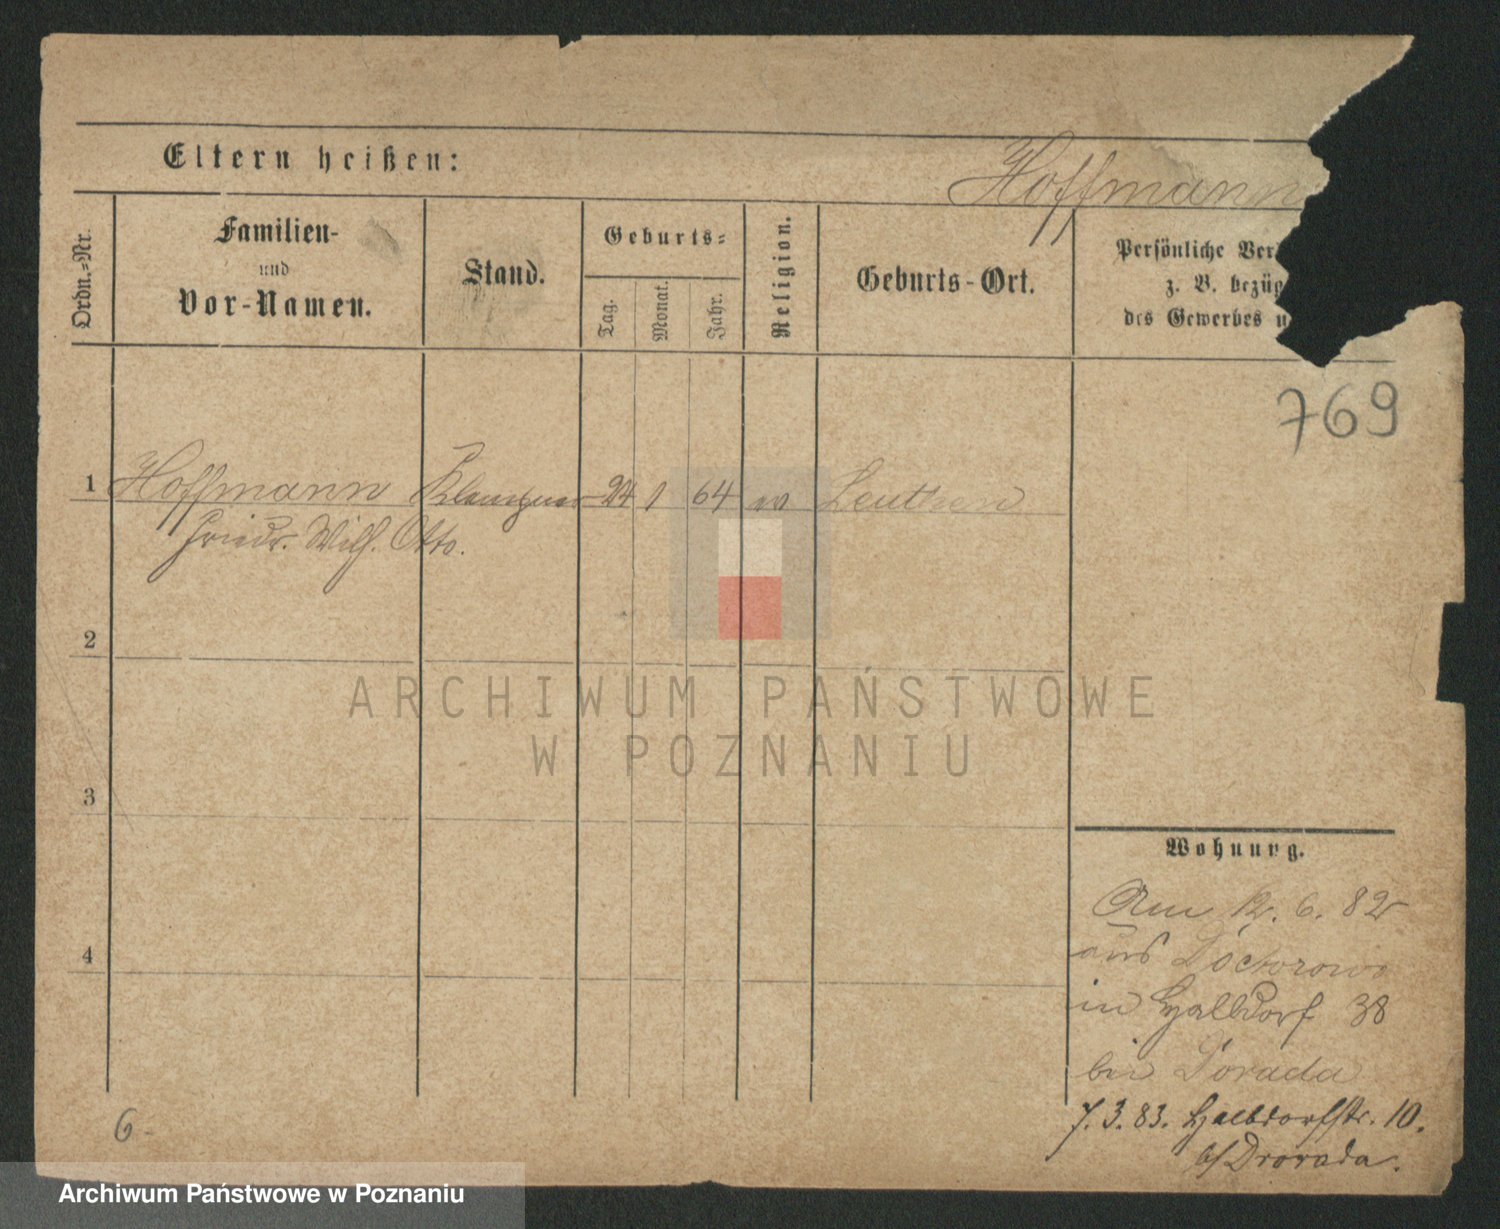 Eltern heißen:
Hoffmann
Ordn.-Nr.
Familien-
und
Vor-Namen.
Stand.
Geburts-
Tag.
Monat.
Jahr.
Religion.
Geburts-Ort.
Persönliche Ver
z. B. bezüg
des Gewerbes u
769
1 Hoffmann Klempner 24 1 64 ev Leuthen
Friedr. Wilh. Otto.
2
3
4
Wohnung.
Am 12. 6. 82
aus
in Halbdorf 38
bei Dorada
7. 3. 83. Halbdorfstr. 10.
b/ Drorada.
6
ARCHIWUM PAŃSTWOWE
W POZNANIU
Archiwum Państwowe w Poznaniu